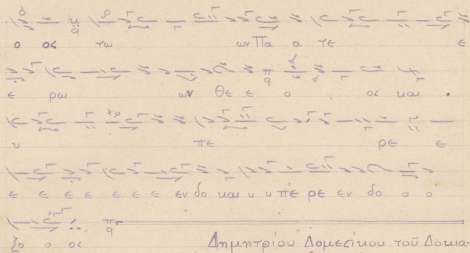 ο ος τω ων Πα α τε ε
ε ρω ων θε ε ο ος και
υ πε ρε ε
ε ε ε ε ε ε ε εν δο και υ υ πε ρε εν δο ο ο
ξο ο ος
Δημητρίου Δομεςίκου τοῦ Δοκια-